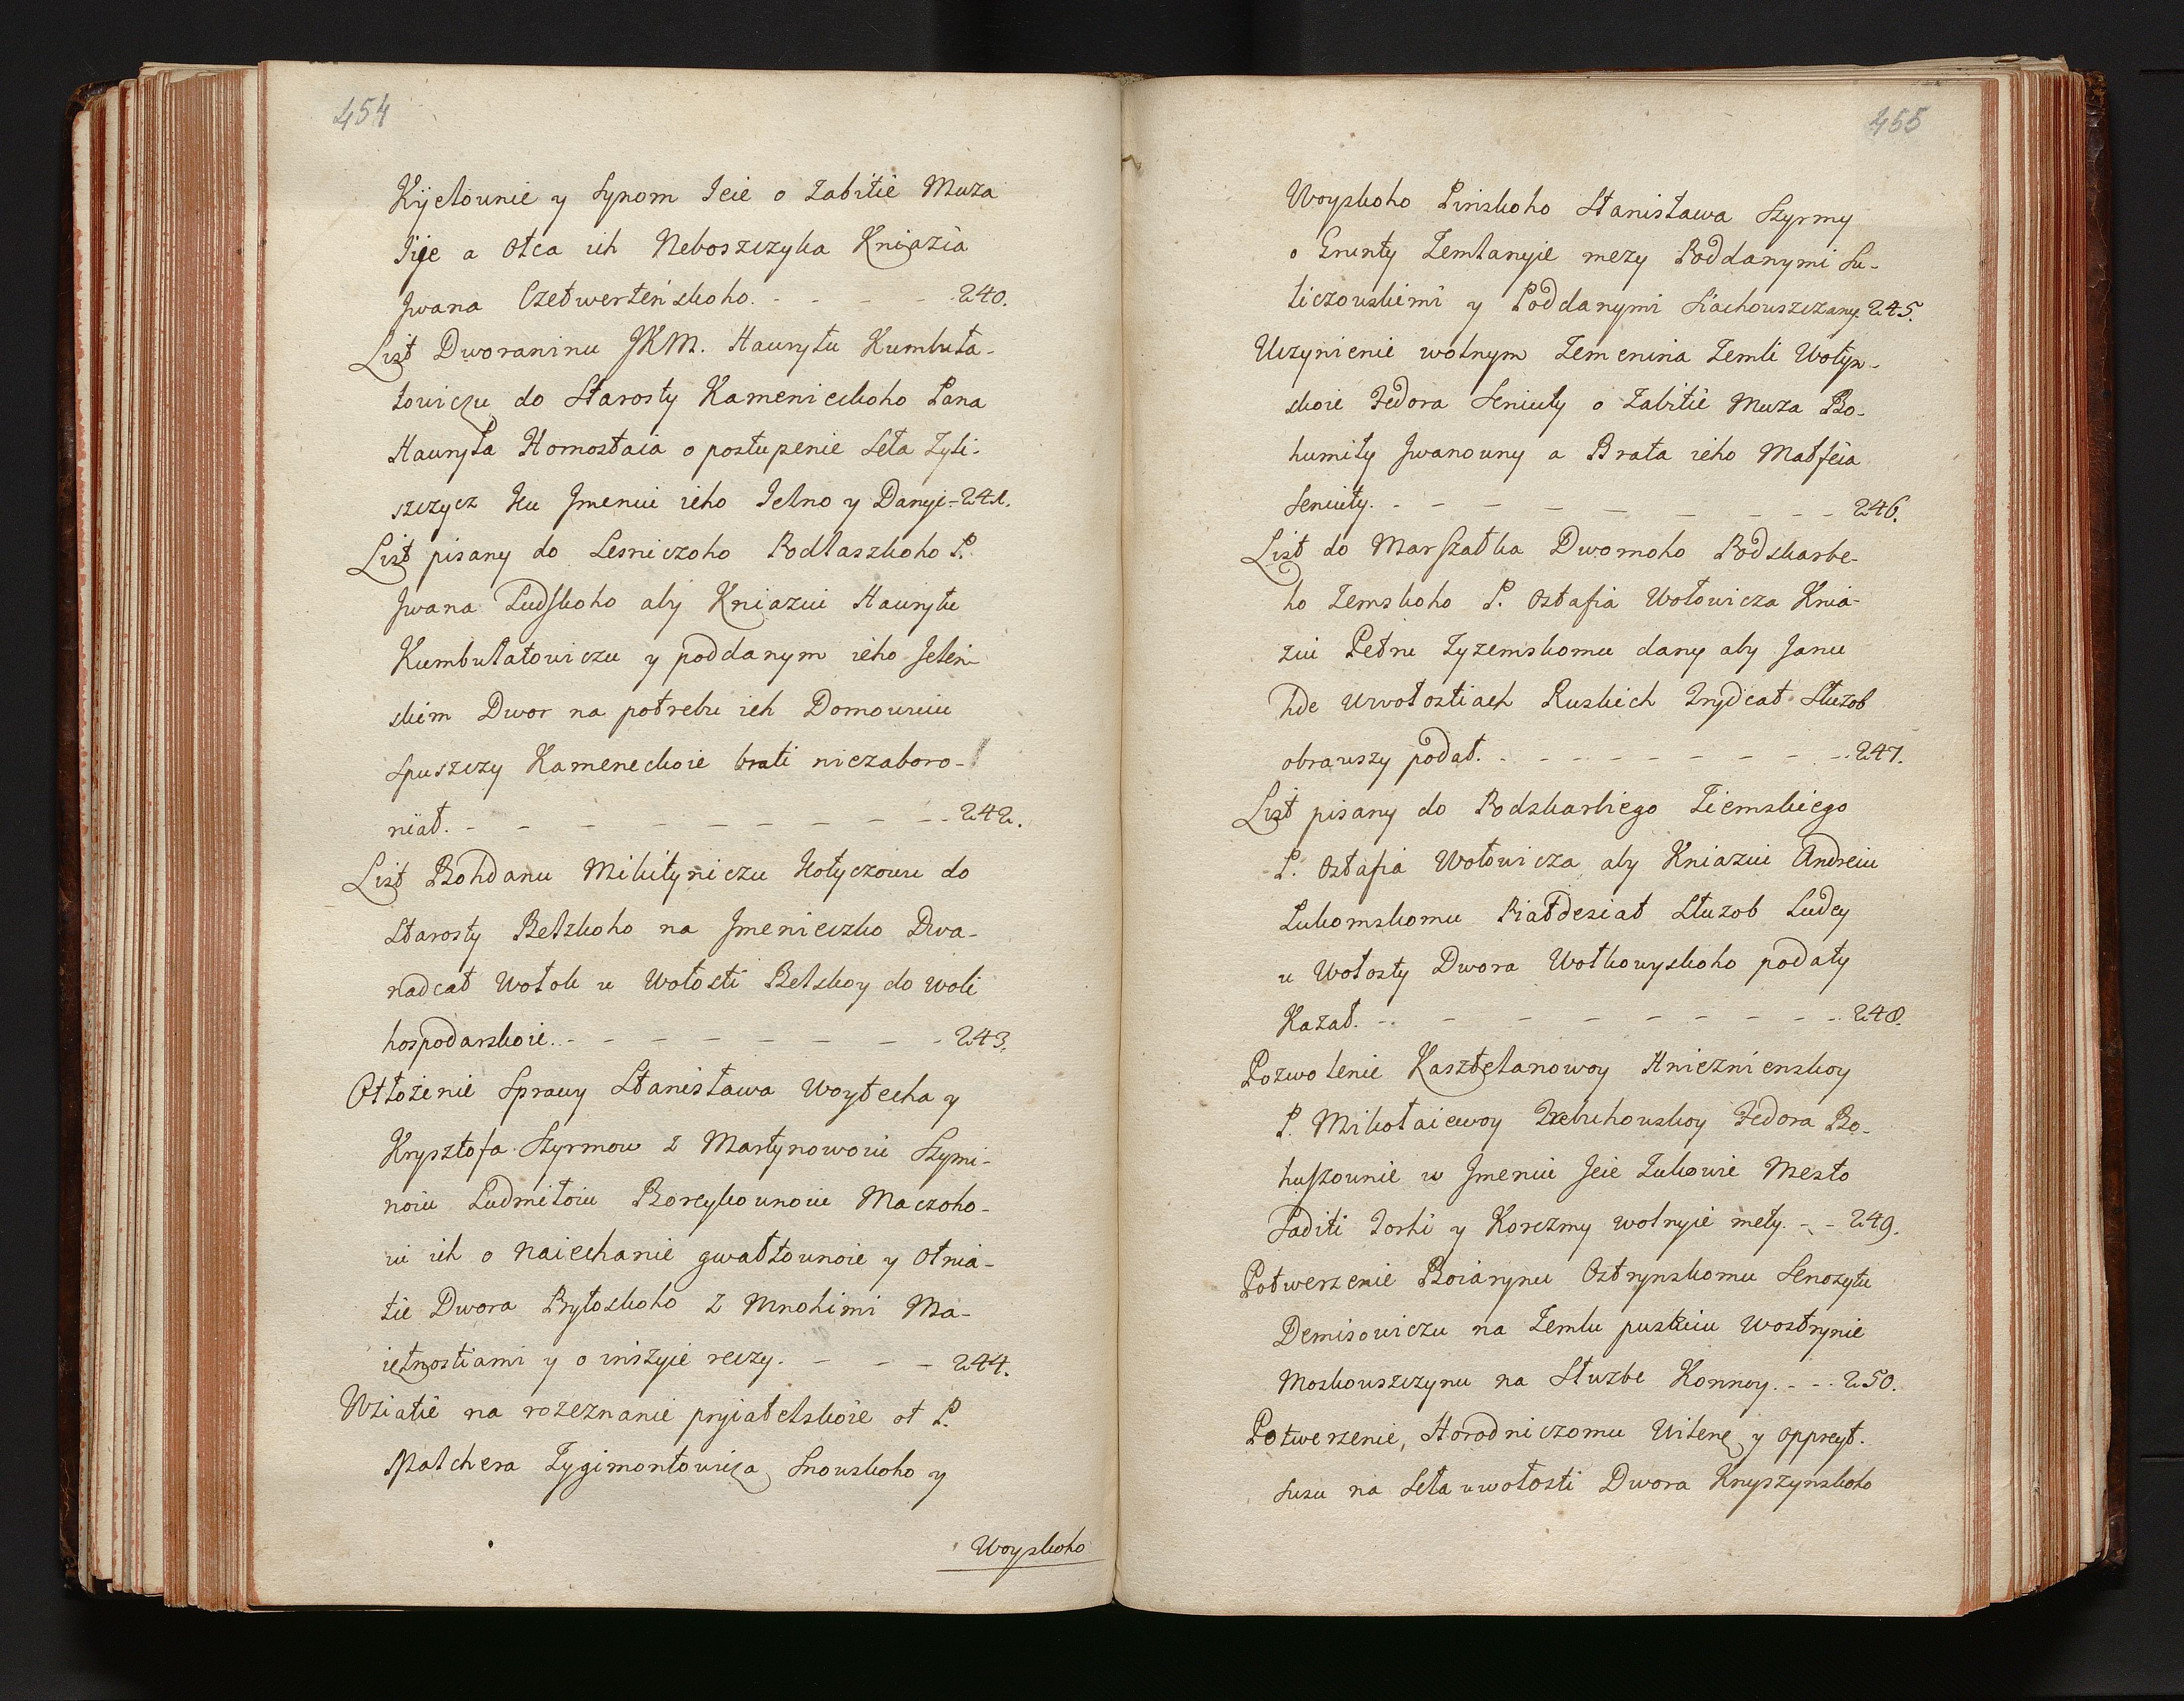 454
Kijelounie y Synom Jeie o Zabitie Muza
Jije a Otca ich Neboszczyka Kniazia
Jwana Czetwerteńskoho. - - - - 240.
List Dworaninu JKM. Hawryłu Kumbuła-
towiczu do Starosty Kamenieckoho Pana
Hawryła Hornostaia o postupenie Seła Zyli-
szczycz Ku Jmeniu ieho Jelno y Danyie - 241.
List pisany do Lesniczoho Podlaszkoho P.
Jwana Ludskoho aby Kniaziu Hawryłu
Kumbułatowiczu y poddanym ieho Jeleń
skim Dwor na potrebu ich Domowuiu
spuszczy Kameneckoie brati niezaboro-
niał. - - - - - - - - 242.
List Bohdanu Mikityniczu Hołyczowu do
Starosty Belskoho na Jmenieczko Dwa-
nadcat Wołok u Wołosti Belskoy do woli
hospodarskoie. - - - - - - - 243.
Otłożenie Sprawy Stanisława Woytecha y
Krysztofa Szyrmow z Martynowoiu Szymi-
noiu Ludmiłoiu Boreykownoiu Maczoho-
iu ich o naiechanie gwałtownoie y Otnia-
tie Dwora Pryłoskoho z Mnohimi Ma-
ietnostiami y o inszyie reczy. - - - 244.
Wziatie na rozeznanie pryiatelskoie ot P.
Malchera Zygimontowicza Snowskoho y
Woyskoho
455
Woyskoho Pinskoho Stanisława Szyrmy
o Grunty Zemlanyie mezy Poddanymi Su-
liczowskimi y Poddanymi Siachowszczany. 245.
Uczynienie wolnym Zemenina Zemli Wołyn-
skoie Fedora Seniuty o Zabitie Muza Bo-
humiły Jwanowny a Brata ieho Matfeia
Seniuty. - - - - - - - - 246.
List do Marszałka Dwornoho Podskarbe-
ho Zemskoho P. Ostafia Wołowicza Knia-
ziu Petru Zyzemskomu dany aby Janu
hde uwołostiach Ruskich Trydcat Słuzob
obrawszy podał. - - - - - - - 247.
List pisany do Podskarbiego Ziemskiego
P. Ostafia Wołowicza aby Kniaziu Andreiu
Łukomskomu Piatdesiat Słuzob Ludey
u Wołosty Dwora Wołkowyskoho podaty
Kazał. - - - - - - - - 248.
Pozwolenie Kasztelanowoy Hnieznienskoy
P. Mikołaiewoy Trebuchowskoy Fedora Bo-
huszownie w Jmeniu Jeie Zukowie Mesto
Saditi Torhi y Korczmy wolnyie mety. - - 249.
Potwerzenie Boiarynu Ostrynskomu Senozytu
Demisowiczu na Zemlu pustuiu Wostrynie
Moskowszczynu na Słuzbe Konnoy. - - 250.
Potwerzenie, Horodniczomu Wilene y oppreyt.
susu na Seła uwołosti Dwora Knyszynskoho